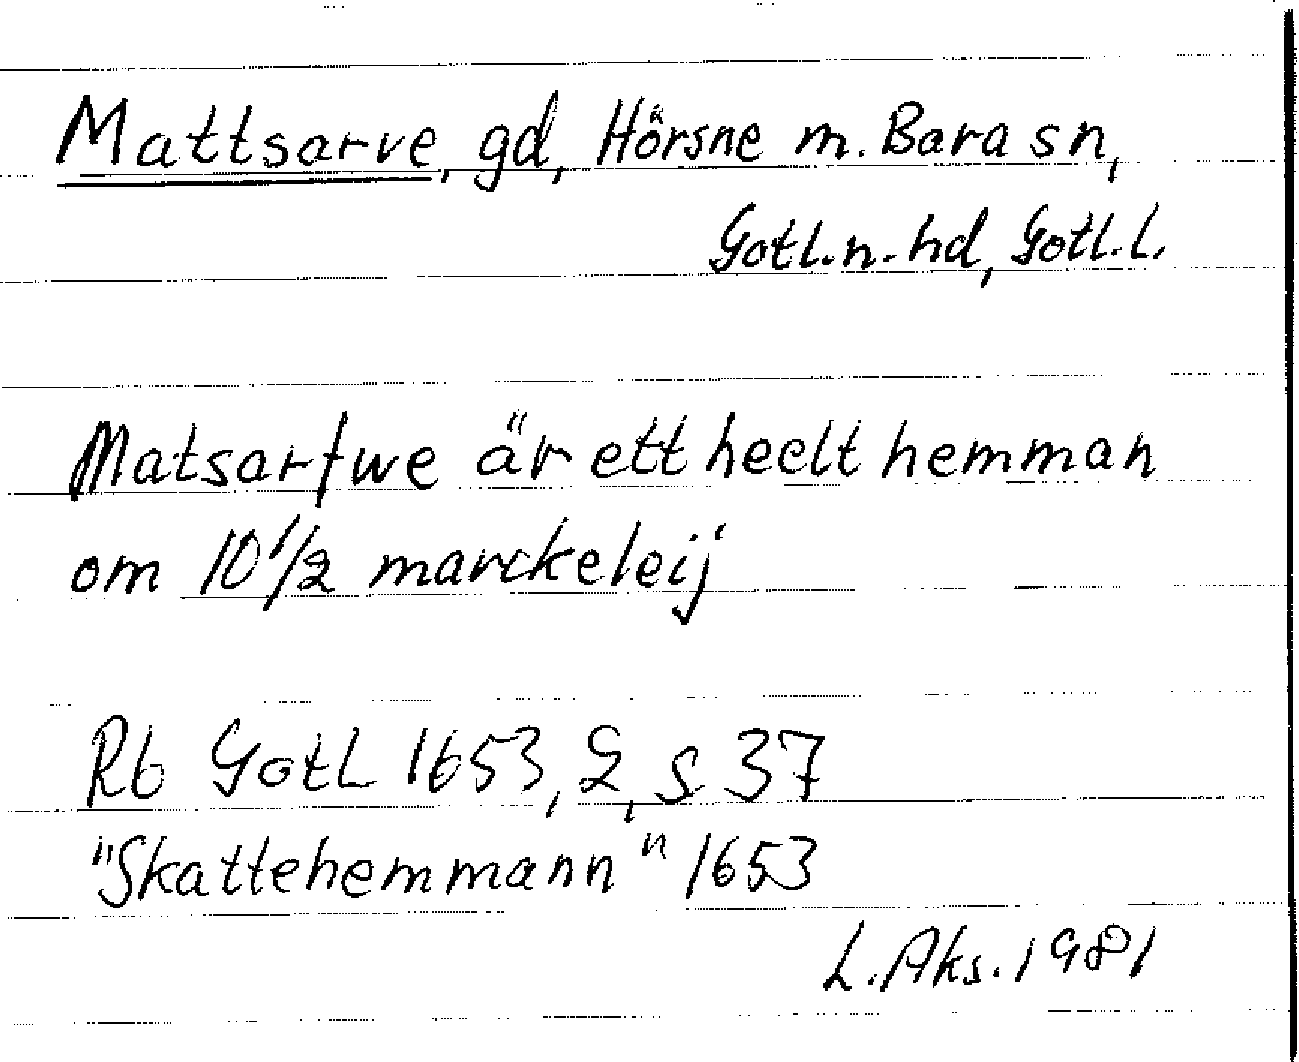 Mattsarve, gd, Hörsne m. Bara sn,
Gotl. n. hd, Gotl. l.
Matsarfwe är ett heelt hemman
om 10 1/2 marckeleij
Rb Gotl 1653, 2, s 37
"Skattehemmann" 1653
L. Aks. 1981